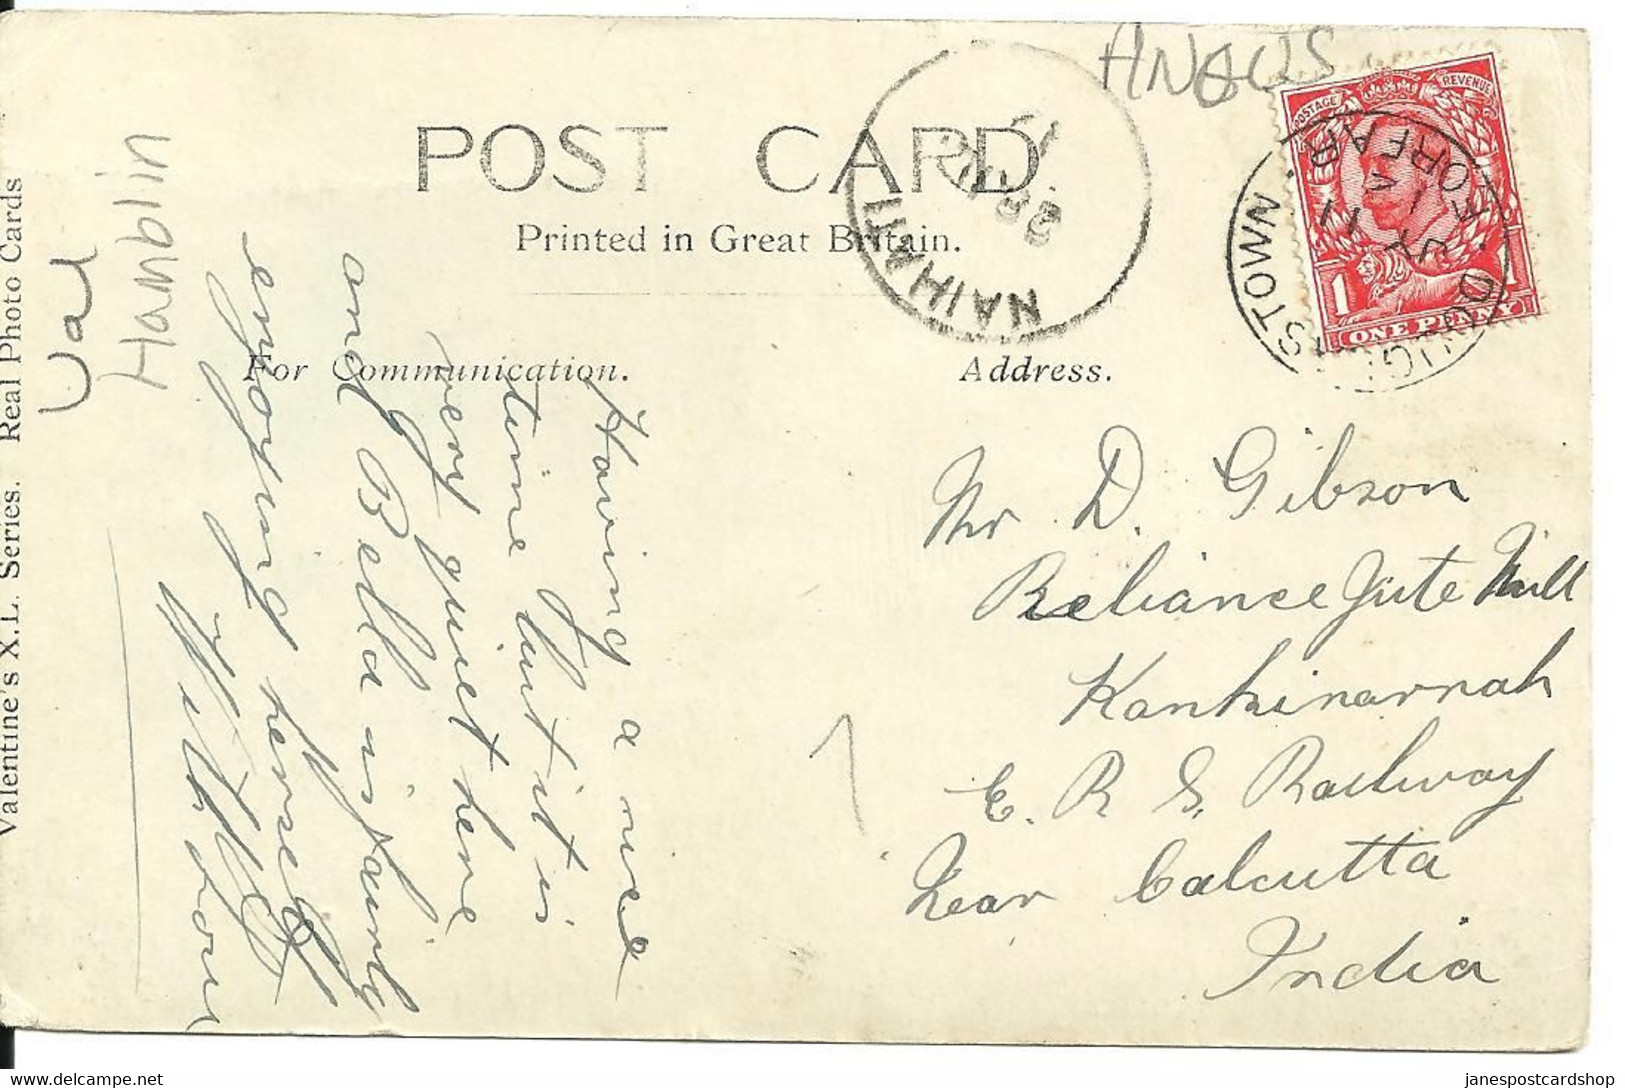 ANGUS
POST CARD
Printed in Great Britain.
For Communication.
Address.
Valentine's X.L. Series. Real Photo Cards
Val
Hamblin
Having a nice
time but it is
very quiet here
and Bella is fairly
enjoying herself
Mr D. Gibson
Reliance Jute Mill
Kankinarrah
E. B. S. Railway
Near Calcutta
India
NAIHATI
28
12
STOWN
FORFAR
JY 11
12
POSTAGE REVENUE
1 ONE PENNY
janespostcardshop
delcampe.net